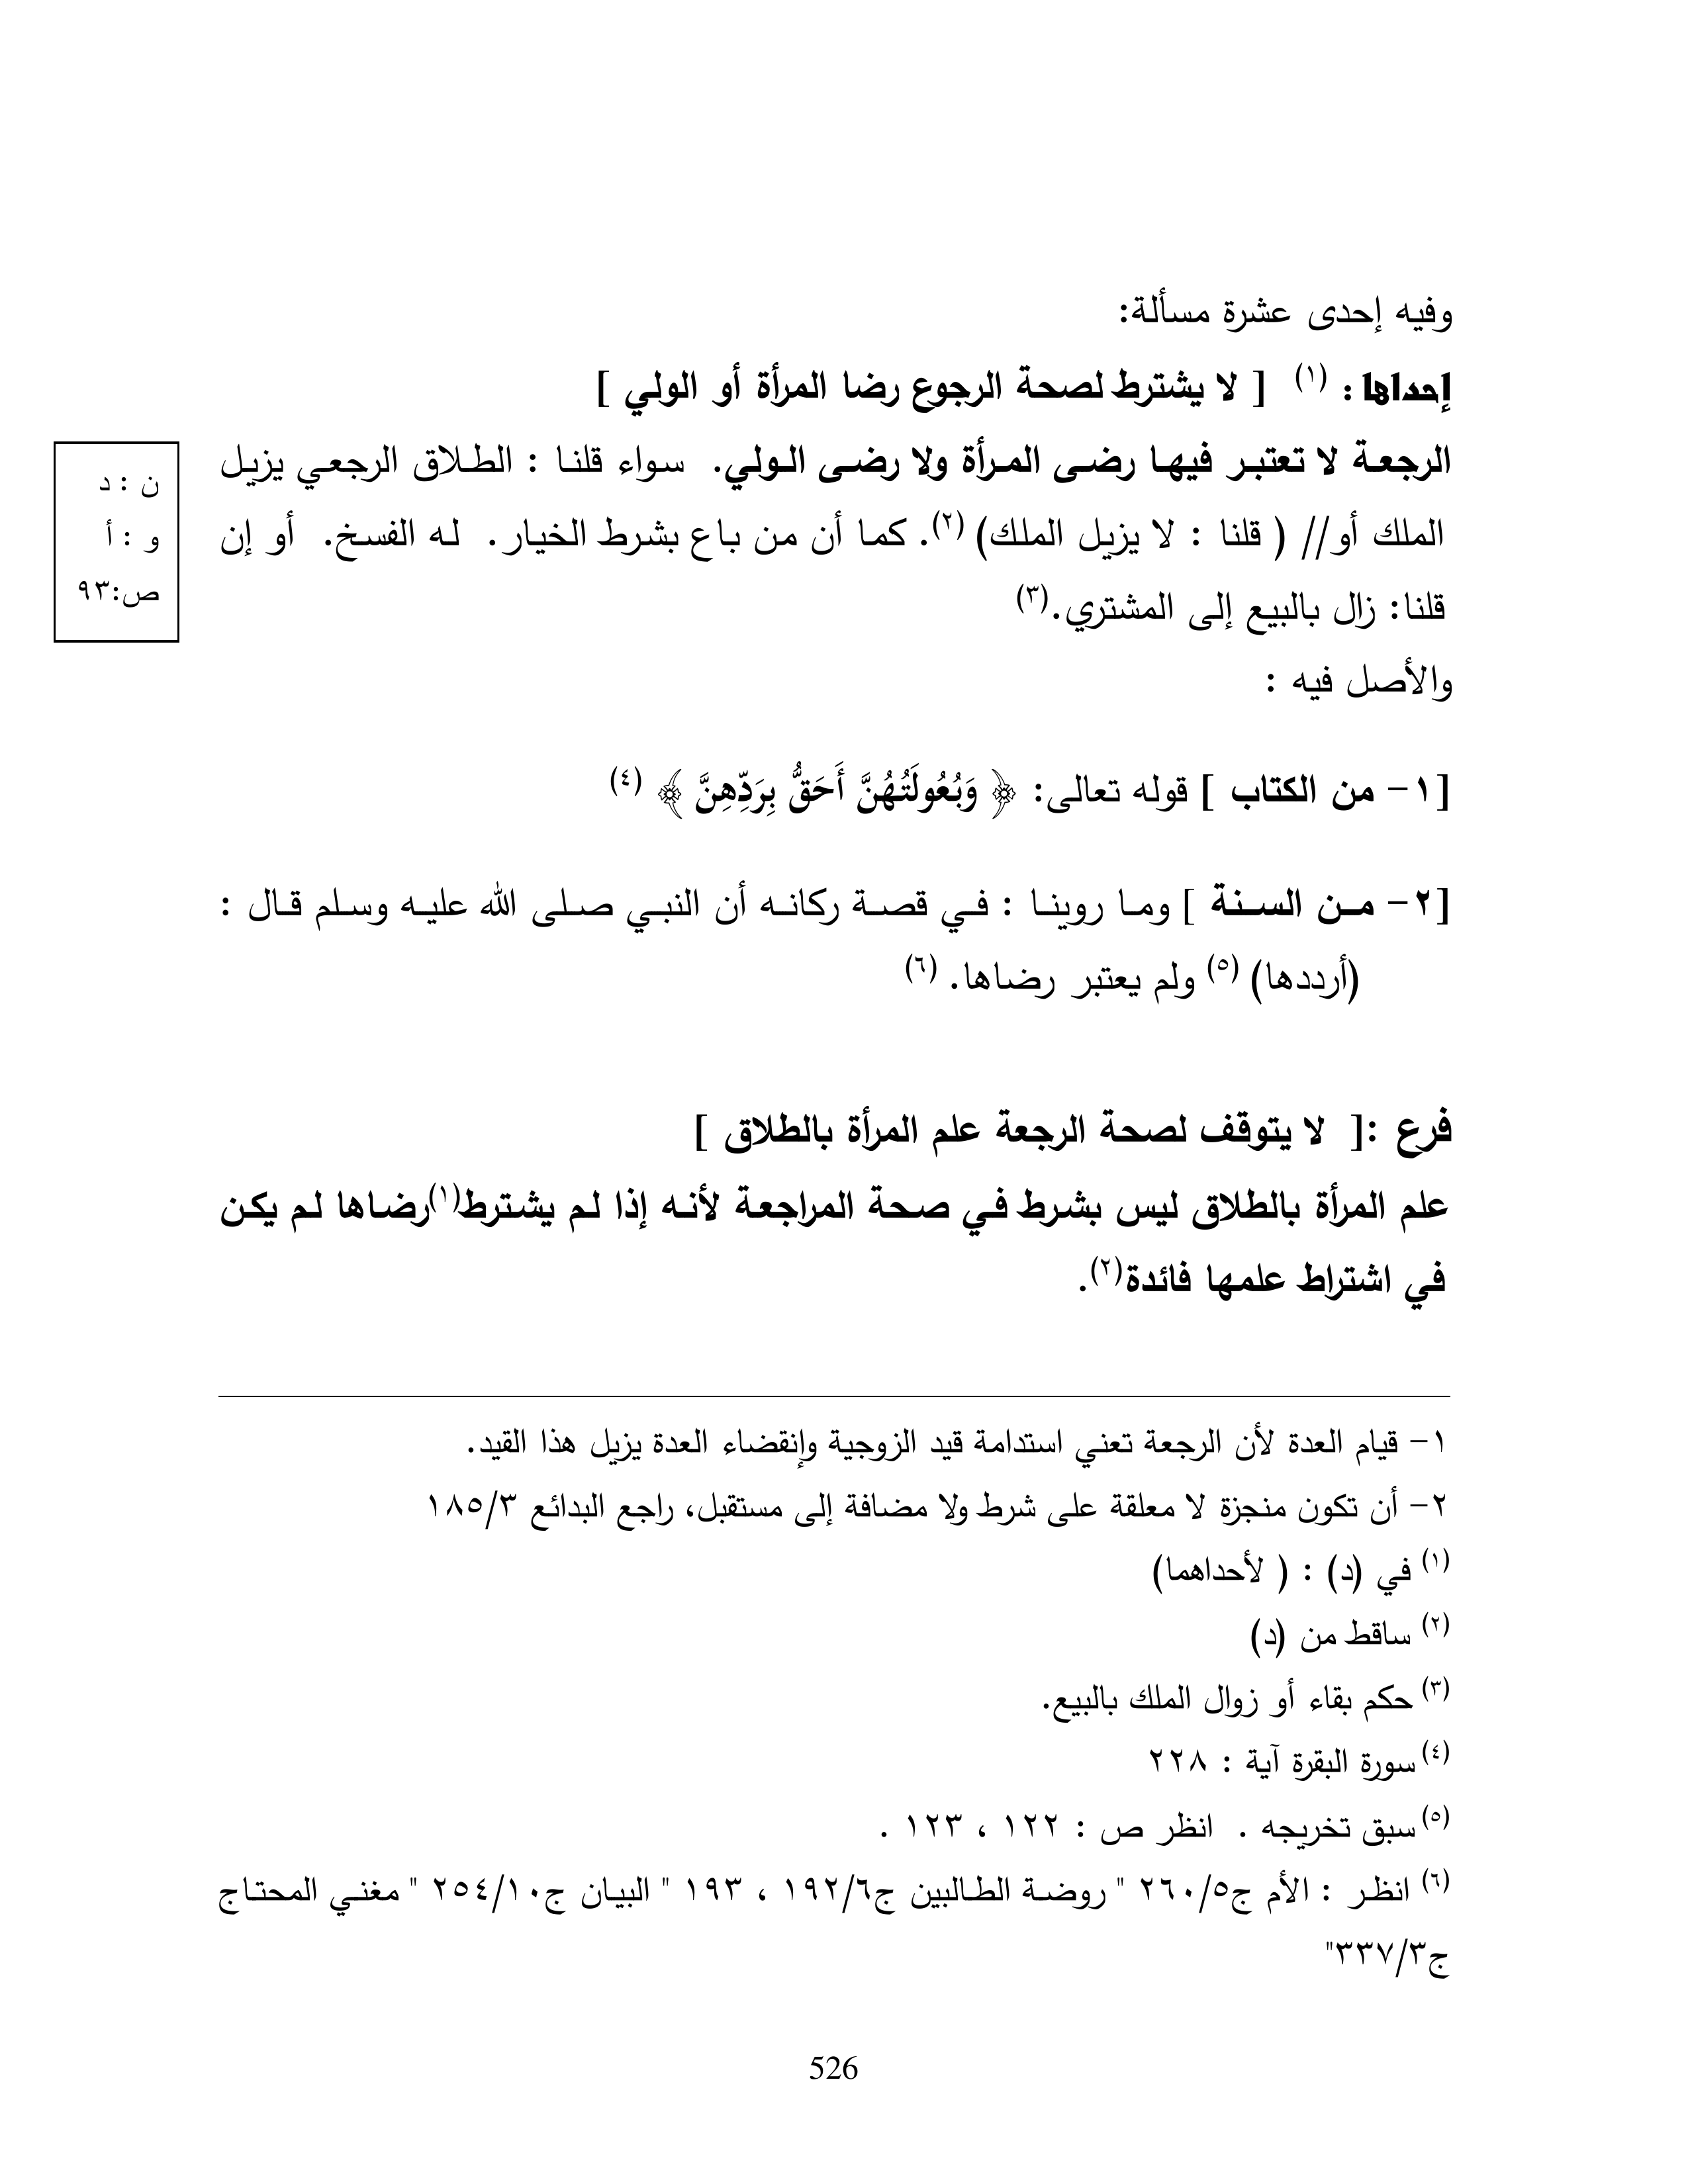 وفيه إحدى عشرة مسألة:
إحداها : (١) [ لا يشترط لصحة الرجوع رضا المرأة أو الولي ]
الرجعة لا تعتبر فيها رضى المرأة ولا رضى الولي. سواء قلنا : الطلاق الرجعي يزيل
الملك أو// ( قلنا : لا يزيل الملك) (٢). كما أن من باع بشرط الخيار. له الفسخ. أو إن
قلنا: زال بالبيع إلى المشتري.(٣)
ن : د
و : أ
ص:٩٣
والأصل فيه :
[١- من الكتاب ] قوله تعالى: ﴿ وَبُعُولَتُهُنَّ أَحَقُّ بِرَدِّهِنَّ ﴾ (٤)
[٢- من السنة ] وما روينا : في قصة ركانه أن النبي صلى الله عليه وسلم قال :
(أرددها) (٥) ولم يعتبر رضاها. (٦)
فرع :[ لا يتوقف لصحة الرجعة علم المرأة بالطلاق ]
علم المرأة بالطلاق ليس بشرط في صحة المراجعة لأنه إذا لم يشترط(١)رضاها لم يكن
في اشتراط علمها فائدة(٢).
١- قيام العدة لأن الرجعة تعني استدامة قيد الزوجية وإنقضاء العدة يزيل هذا القيد.
٢- أن تكون منجزة لا معلقة على شرط ولا مضافة إلى مستقبل، راجع البدائع ١٨٥/٣
(١) في (د) : ( لأحداهما)
(٢) ساقط من (د)
(٣) حكم بقاء أو زوال الملك بالبيع.
(٤) سورة البقرة آية : ٢٢٨
(٥) سبق تخريجه . انظر ص : ١٢٢ ، ١٢٣ .
(٦) انظر : الأم ج٢٦٠/٥ " روضة الطالبين ج١٩٢/٦ ، ١٩٣ " البيان ج٢٥٤/١٠ " مغني المحتاج
ج٣٣٧/٣"
526